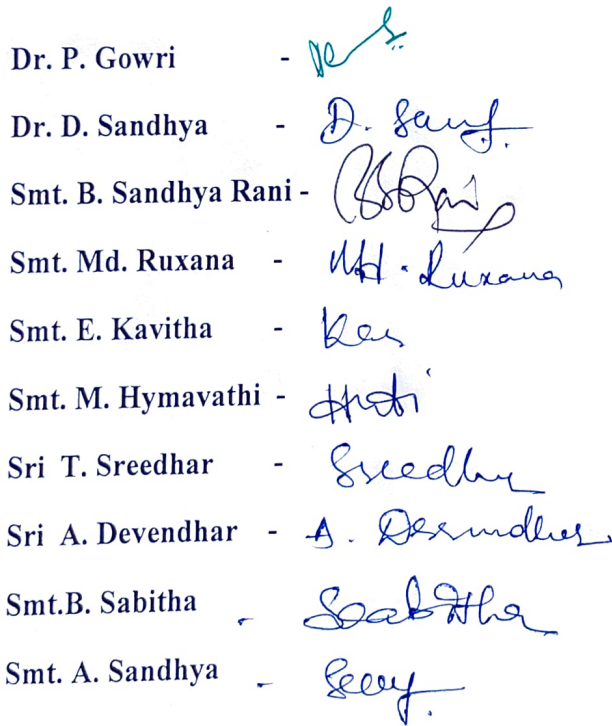 Dr. P. Gowri -
Dr. D. Sandhya - D. Sandy.
Smt. B. Sandhya Rani - BSRani
Smt. Md. Ruxana - Md. Ruxana
Smt. E. Kavitha - Kav
Smt. M. Hymavathi -
Sri T. Sreedhar - Sreedhar
Sri A. Devendhar - A. Devendhar
Smt.B. Sabitha - Sabitha
Smt. A. Sandhya -